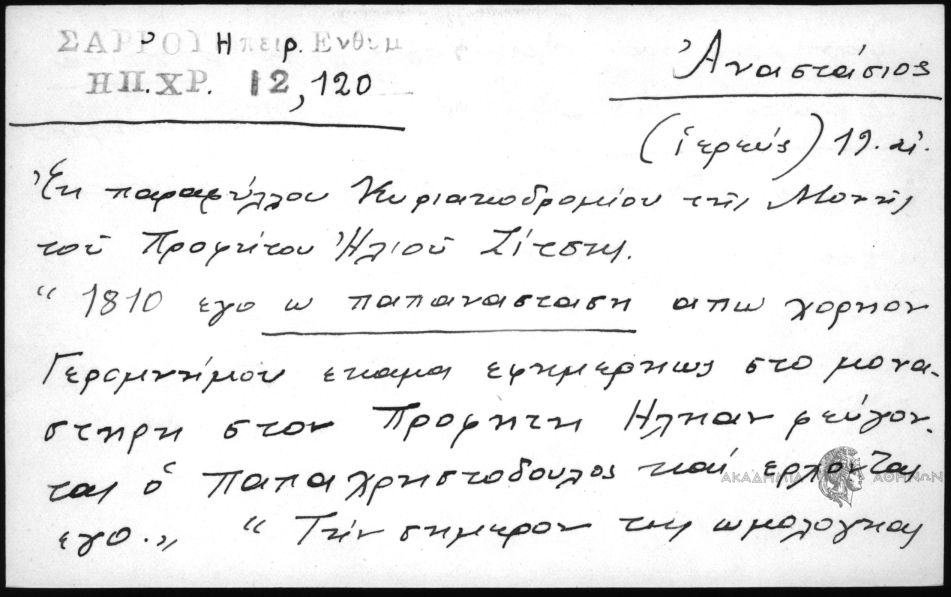 ΣΑΡΡΟΥ Ηπειρ. Ενθυμ
ΗΠ.ΧΡ. 12, 120
Ἀναστάσιος
(ἱερεύς) 19. αἰ.
Ἐκ παραφύλλου Κυριακοδρομίου τῆς Μονῆς
τοῦ Προφήτου Ἠλιοῦ Ζίτσης.
“ 1810 εγο ω παπανασταση απω χορηον
Γερομνήμου εκαμα εφημερηως στο μονα-
στηρη στον Προφητη Ηληαν φεύγον-
τας ὁ παπαχρηστοδουλος καί ερχόντας
εγο.„ “ Τήν σημερον της ωμολογηας
ΑΚΑΔΗΜΙΑ ΑΘΗΝΩΝ